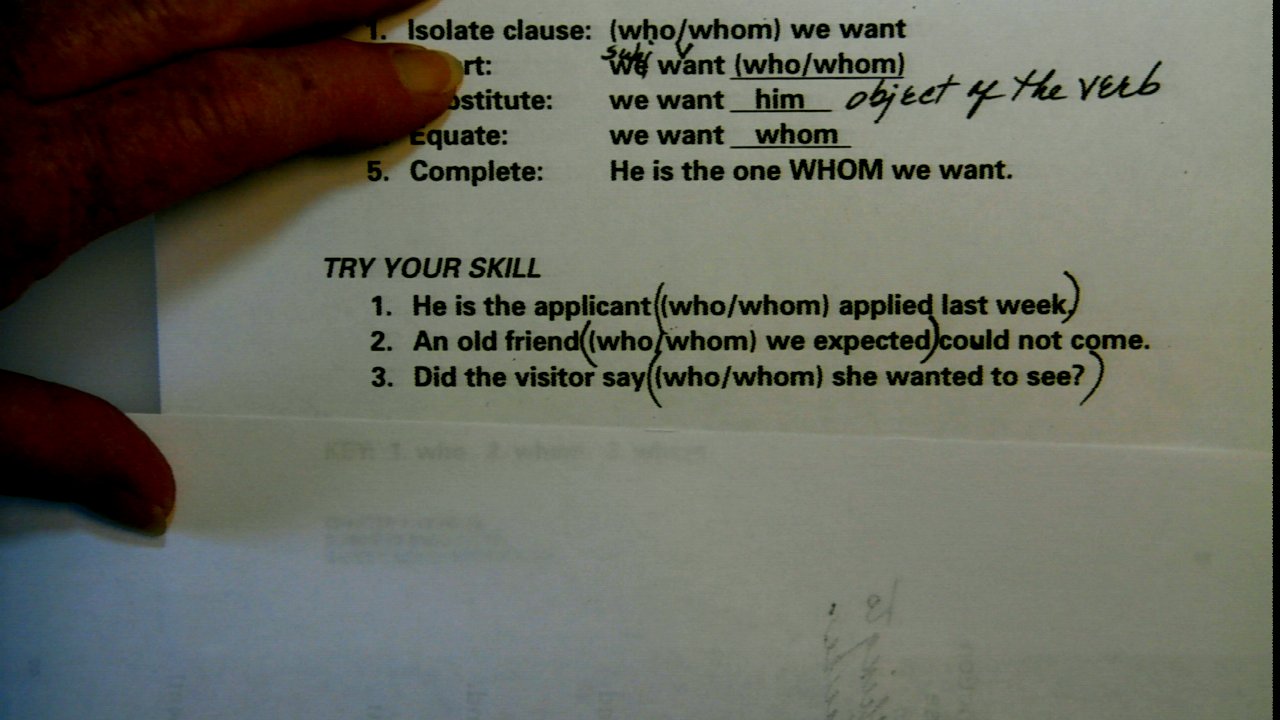 1. Isolate clause: (who/whom) we want
subj v
rt: we want (who/whom)
ostitute: we want him object of the verb
Equate: we want whom
5. Complete: He is the one WHOM we want.
TRY YOUR SKILL
1. He is the applicant ((who/whom) applied last week.)
2. An old friend ((who/whom) we expected) could not come.
3. Did the visitor say ((who/whom) she wanted to see?)
KEY: 1. who 2. whom 3. whom